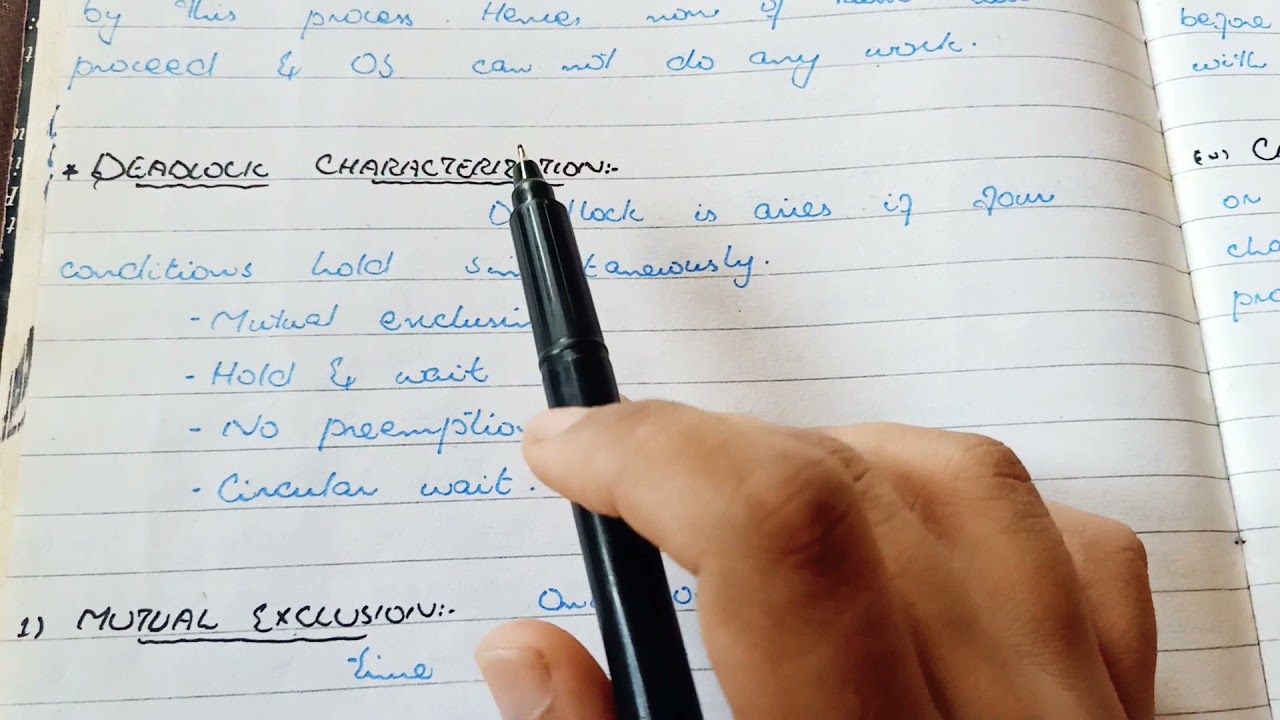 by this process. Hence none of
proceed & OS can not do any work.
* DEADLOCK CHARACTERIZATION:-
lock is aries if four
conditions hold taneously.
- Mutual exclusi
- Hold & wait
- No preemptio
- Circular wait.
1) MUTUAL EXCLUSION:-
time
before
with
on
cha
pro